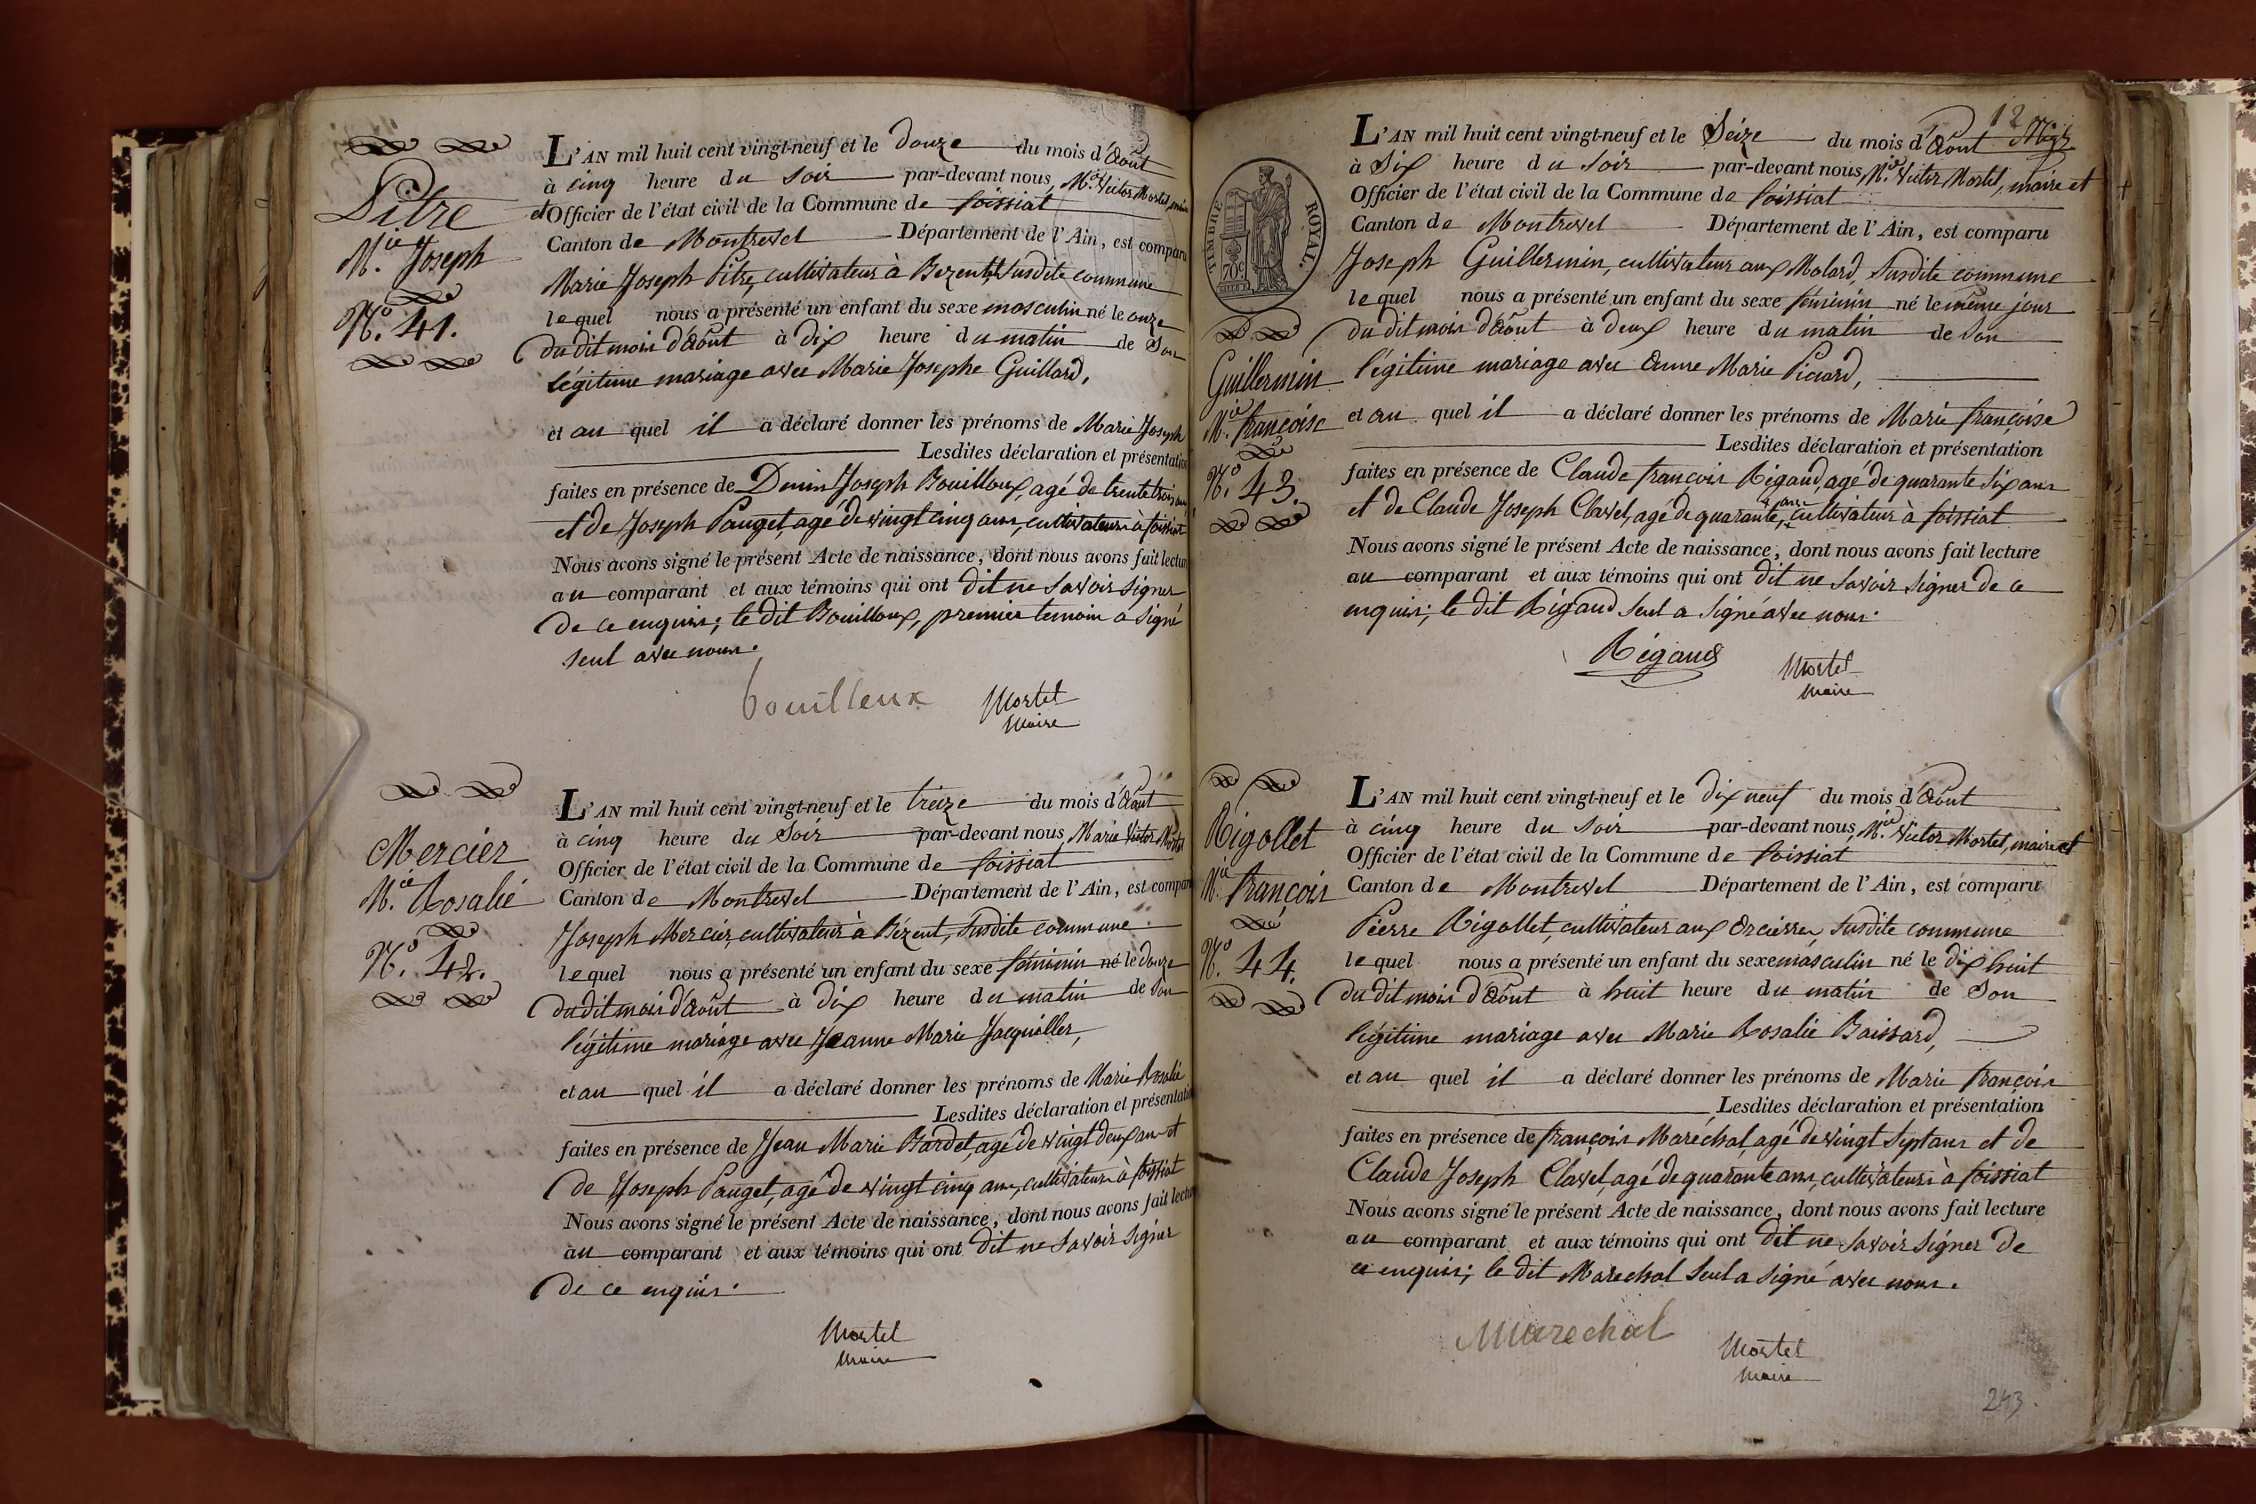 Pitre
M.ie Joseph
N.o 41.
L'AN mil huit cent vingt-neuf et le douze du mois d'Août
à cinq heure du soir par-devant nous, M.ie Victor Mortel, maire
et Officier de l'état civil de la Commune de foissiat
Canton de Montrevel Département de l'Ain, est comparu
Marie Joseph Pitre, cultivateur à Bezent, susdite commune
lequel nous a présenté un enfant du sexe masculin né le onze
du dit mois d'Août à dix heure du matin de son
légitime mariage avec Marie Josephe Guillard,
et au quel il a déclaré donner les prénoms de Marie Joseph
Lesdites déclaration et présentation
faites en présence de Denis Joseph Bouilloux, agé de trente trois ans
et de Joseph Pauget, agé de vingt cinq ans, cultivateurs à foissiat
Nous avons signé le présent Acte de naissance, dont nous avons fait lecture
au comparant et aux témoins qui ont dit ne savoir signer
de ce enquis; le dit Bouilloux, premier temoin a signé
seul avec nous.
bouilleux Mortel
Maire
Mercier
M.ie Rosalie
N.o 42.
L'AN mil huit cent vingt-neuf et le treize du mois d'Août
à cinq heure du soir par-devant nous Marie Victor Mortel
Officier de l'état civil de la Commune de foissiat
Canton de Montrevel Département de l'Ain, est comparu
Joseph Mercier, cultivateur à Bézent, susdite commune
lequel nous a présenté un enfant du sexe féminin né le douze
du dit mois d'Août à dix heure du matin de son
légitime mariage avec Jeanne Marie Jacquiller,
et au quel il a déclaré donner les prénoms de Marie Rosalie
Lesdites déclaration et présentation
faites en présence de Jean Marie Bardet, agé de vingt deux ans et
de Joseph Pauget, agé de vingt cinq ans, cultivateurs à foissiat
Nous avons signé le présent Acte de naissance, dont nous avons fait lecture
au comparant et aux témoins qui ont dit ne savoir signer
de ce enquis.
Mortel
Maire
12
TIMBRE ROYAL.
70c
Guillermin
M.ie françoise
N.o 43.
L'AN mil huit cent vingt-neuf et le Seize du mois d'Août
à Six heure du soir par-devant nous, M.ie Victor Mortel, maire et
Officier de l'état civil de la Commune de foissiat
Canton de Montrevel Département de l'Ain, est comparu
Joseph Guillermin, cultivateur aux Molard, susdite commune
lequel nous a présenté un enfant du sexe féminin né le même jour
du dit mois d'Août à deux heure du matin de son
légitime mariage avec Anne Marie Picard,
et au quel il a déclaré donner les prénoms de Marie françoise
Lesdites déclaration et présentation
faites en présence de Claude françois Rigaud, agé de quarante six ans
et de Claude Joseph Clavel, agé de quarante ans, cultivateurs à foissiat
Nous avons signé le présent Acte de naissance, dont nous avons fait lecture
au comparant et aux témoins qui ont dit ne savoir signer de ce
enquis; le dit Rigaud seul a signé avec nous.
Régaud Mortel
Maire
Rigollet
M.ie françois
N.o 44.
L'AN mil huit cent vingt-neuf et le dix neuf du mois d'Août
à cinq heure du soir par-devant nous, M.ie Victor Mortel, maire et
Officier de l'état civil de la Commune de foissiat
Canton de Montrevel Département de l'Ain, est comparu
Pierre Rigollet, cultivateur aux Orcières, susdite commune
lequel nous a présenté un enfant du sexe masculin né le dix huit
du dit mois d'Août à huit heure du matin de son
légitime mariage avec Marie Rosalie Baissard,
et au quel il a déclaré donner les prénoms de Marie françois
Lesdites déclaration et présentation
faites en présence de françois Maréchal, agé de vingt sept ans et de
Claude Joseph Clavel, agé de quarante ans, cultivateurs à foissiat
Nous avons signé le présent Acte de naissance, dont nous avons fait lecture
au comparant et aux témoins qui ont dit ne savoir signer de
ce enquis; le dit Marechal seul a signé avec nous.
Marechal Mortel
Maire
243.